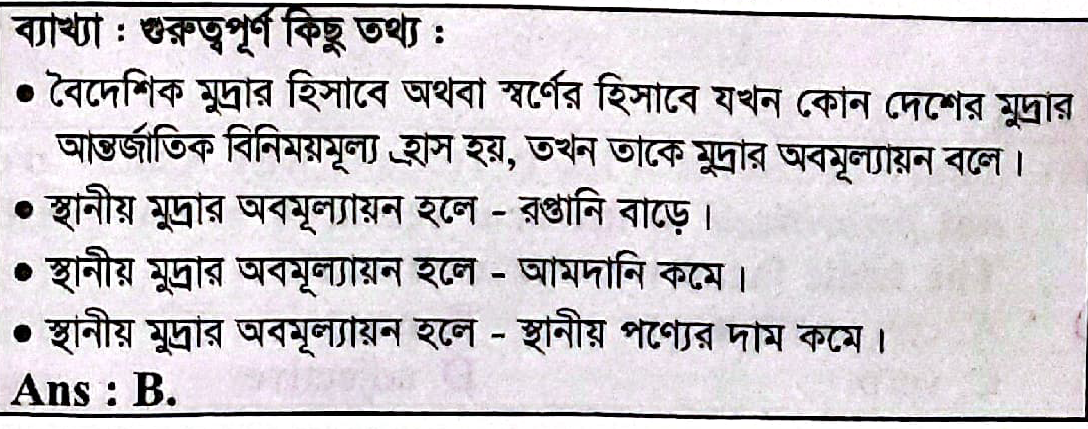 ব্যাখ্যা : গুরুত্বপূর্ণ কিছু তথ্য :
● বৈদেশিক মুদ্রার হিসাবে অথবা স্বর্ণের হিসাবে যখন কোন দেশের মুদ্রার
আন্তর্জাতিক বিনিময়মূল্য হ্রাস হয়, তখন তাকে মুদ্রার অবমূল্যায়ন বলে।
● স্থানীয় মুদ্রার অবমূল্যায়ন হলে - রপ্তানি বাড়ে।
● স্থানীয় মুদ্রার অবমূল্যায়ন হলে - আমদানি কমে।
● স্থানীয় মুদ্রার অবমূল্যায়ন হলে - স্থানীয় পণ্যের দাম কমে।
Ans : B.